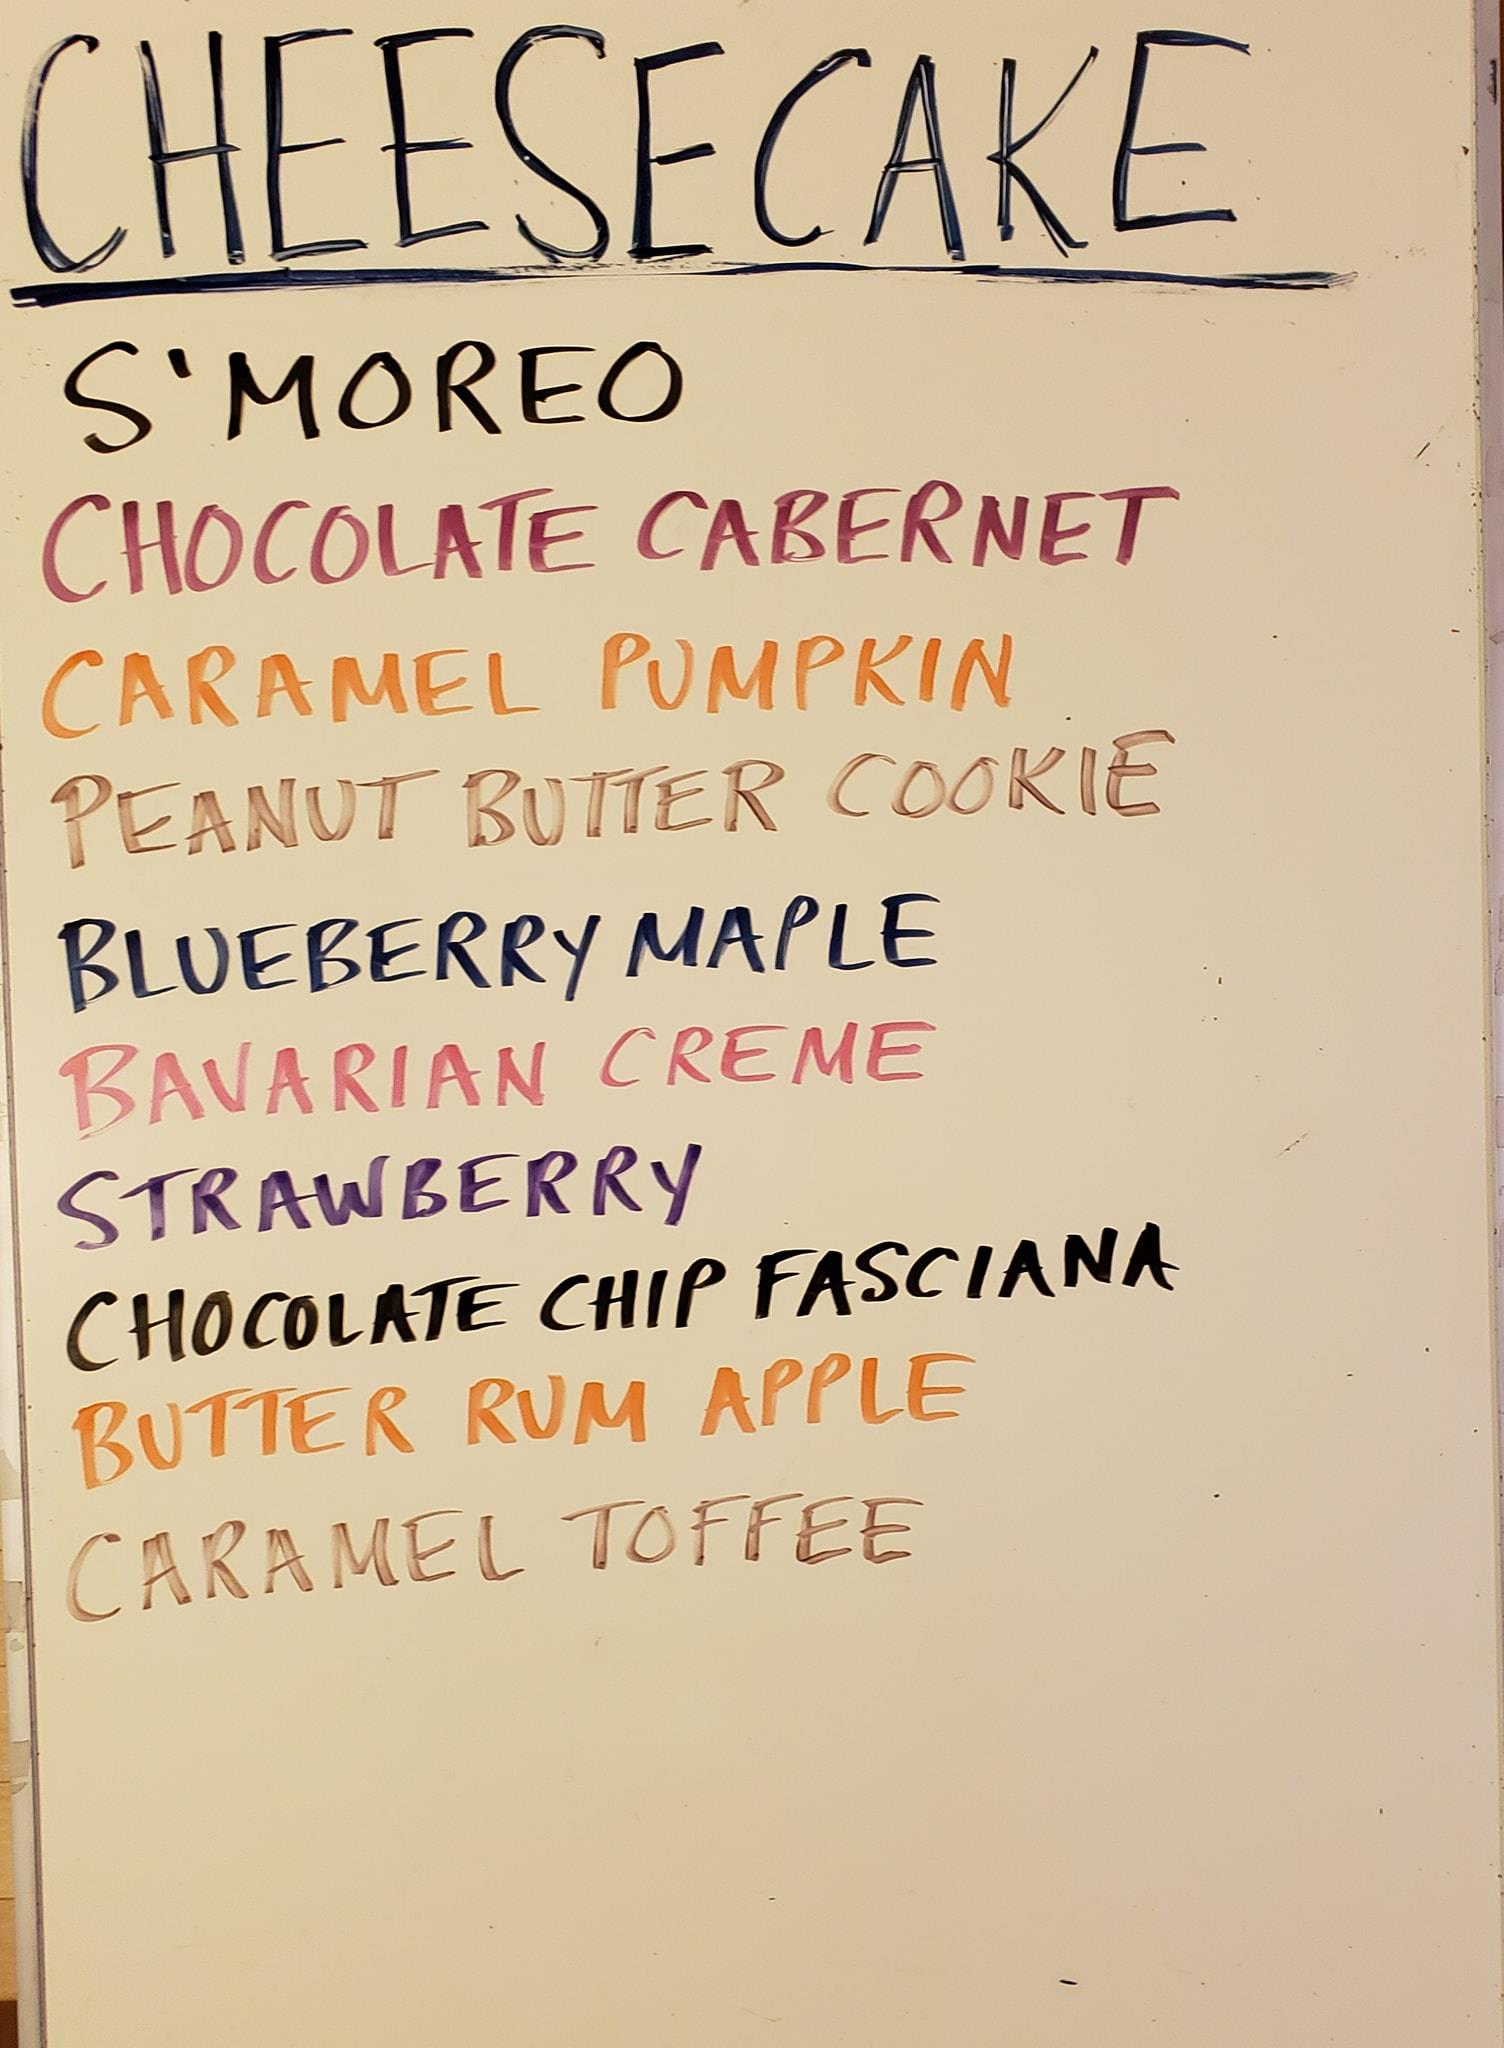 CHEESECAKE
S'MOREO
CHOCOLATE CABERNET
CARAMEL PUMPKIN
PEANUT BUTTER COOKIE
BLUEBERRY MAPLE
BAVARIAN CREME
STRAWBERRY
CHOCOLATE CHIP FASCIANA
BUTTER RUM APPLE
CARAMEL TOFFEE